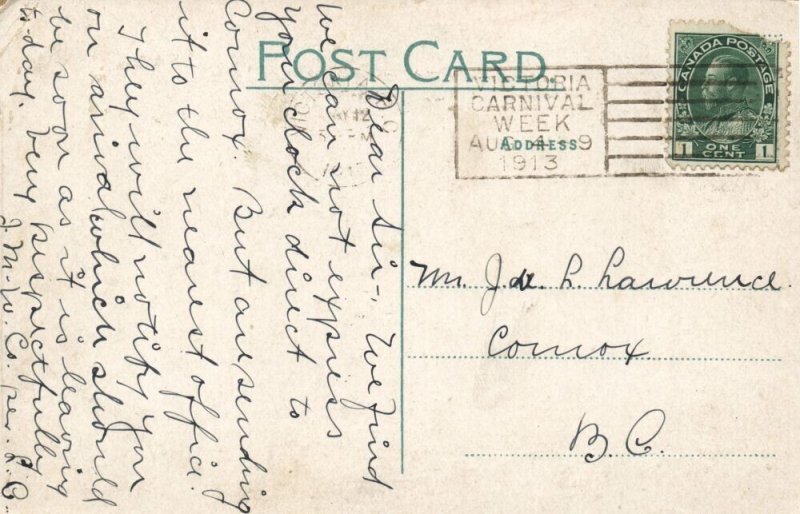 POST CARD.
VICTORIA
CARNIVAL
WEEK
AUG. 4-9
1913
ADDRESS
CANADA POSTAGE
1 ONE CENT 1
Dear Sir-, We find
we can not express
your clock direct to
Comox. But are sending
it to the nearest office.
They will notify you
on arival which should
be soon as it is leaving
to day. Very respectfully
J. M. W. Co. per. L. C.
Mr. J. L. Lawrence.
Comox
B. C.